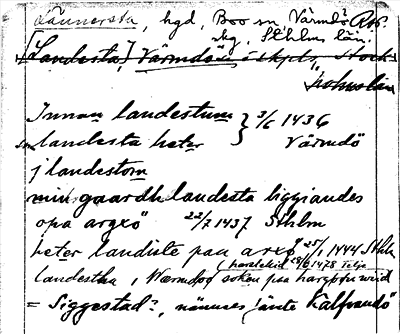 Lännersta, hgd, Boo sn Värmdö
skg, Sthlms län.
[Landesta], Värmdö skpls, Stock-
holms län
Innan landestum } 3/6 1436
landesta heter Värmdö
j landestom
min gaardh landesta liggiandes
opa argxö 22/7 1437 Sthlm
heter landiste paa arxö 25/1 1444 Sthlm
landestha, i Wermdöo soken paa
= Siggestad?, nämnes jämte Kalfsundö